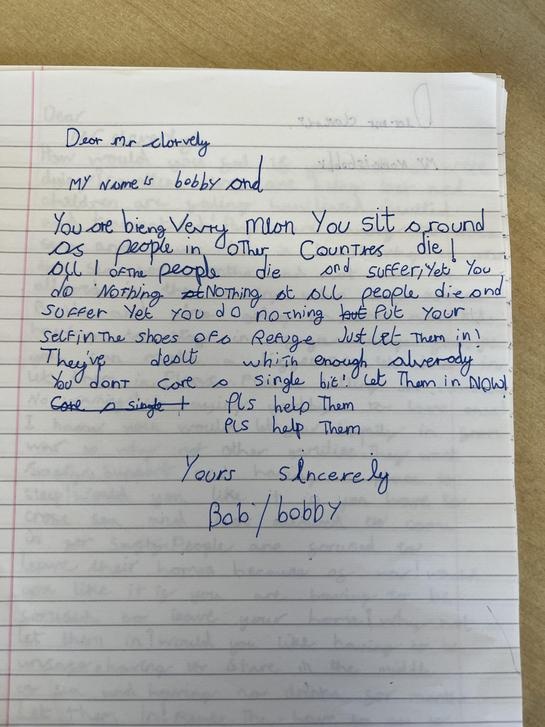 Dear mr clarvely
MY NAMe is bobby and
You are bieng Verry mean You sit around
as people in other Countres die!
all l ofthe people die and suffer, Yet You
do Nothing at NOTHing at all people die and
suffer Yet you do nothing but Put Your
self in the shoes of a Refuge Just Let Them in!
They've dealt which enough alverady
You dont Care a single bit! Let Them in NOW!
Care a single t Pls help Them
Pls help Them
Yours sincerely
Bob/bobby